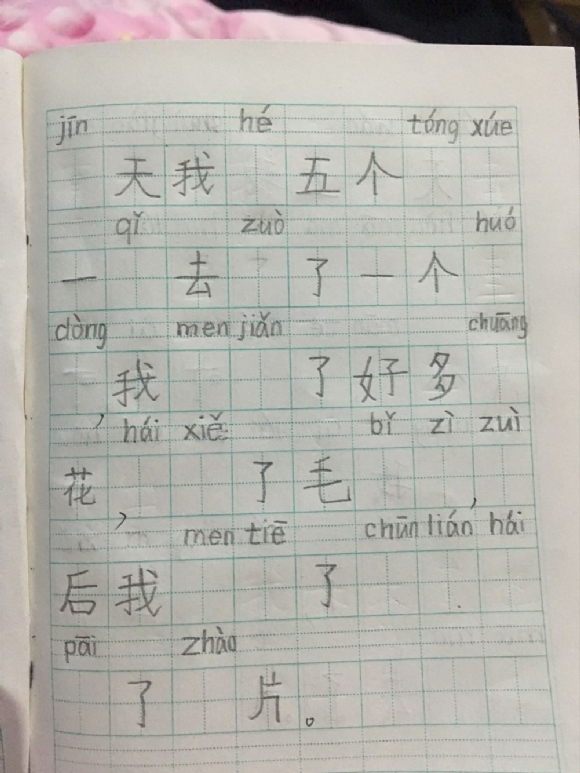 jīn hé tóng xúe
天我 五个
qǐ zuò huó
一 去 了一个
dòng men jiǎn chuāng
我 了好多
, hái xiě bǐ zì zuì
花, 了毛 ,
men tiē chūn lián hái
后我 了
pāi zhào
了 片。